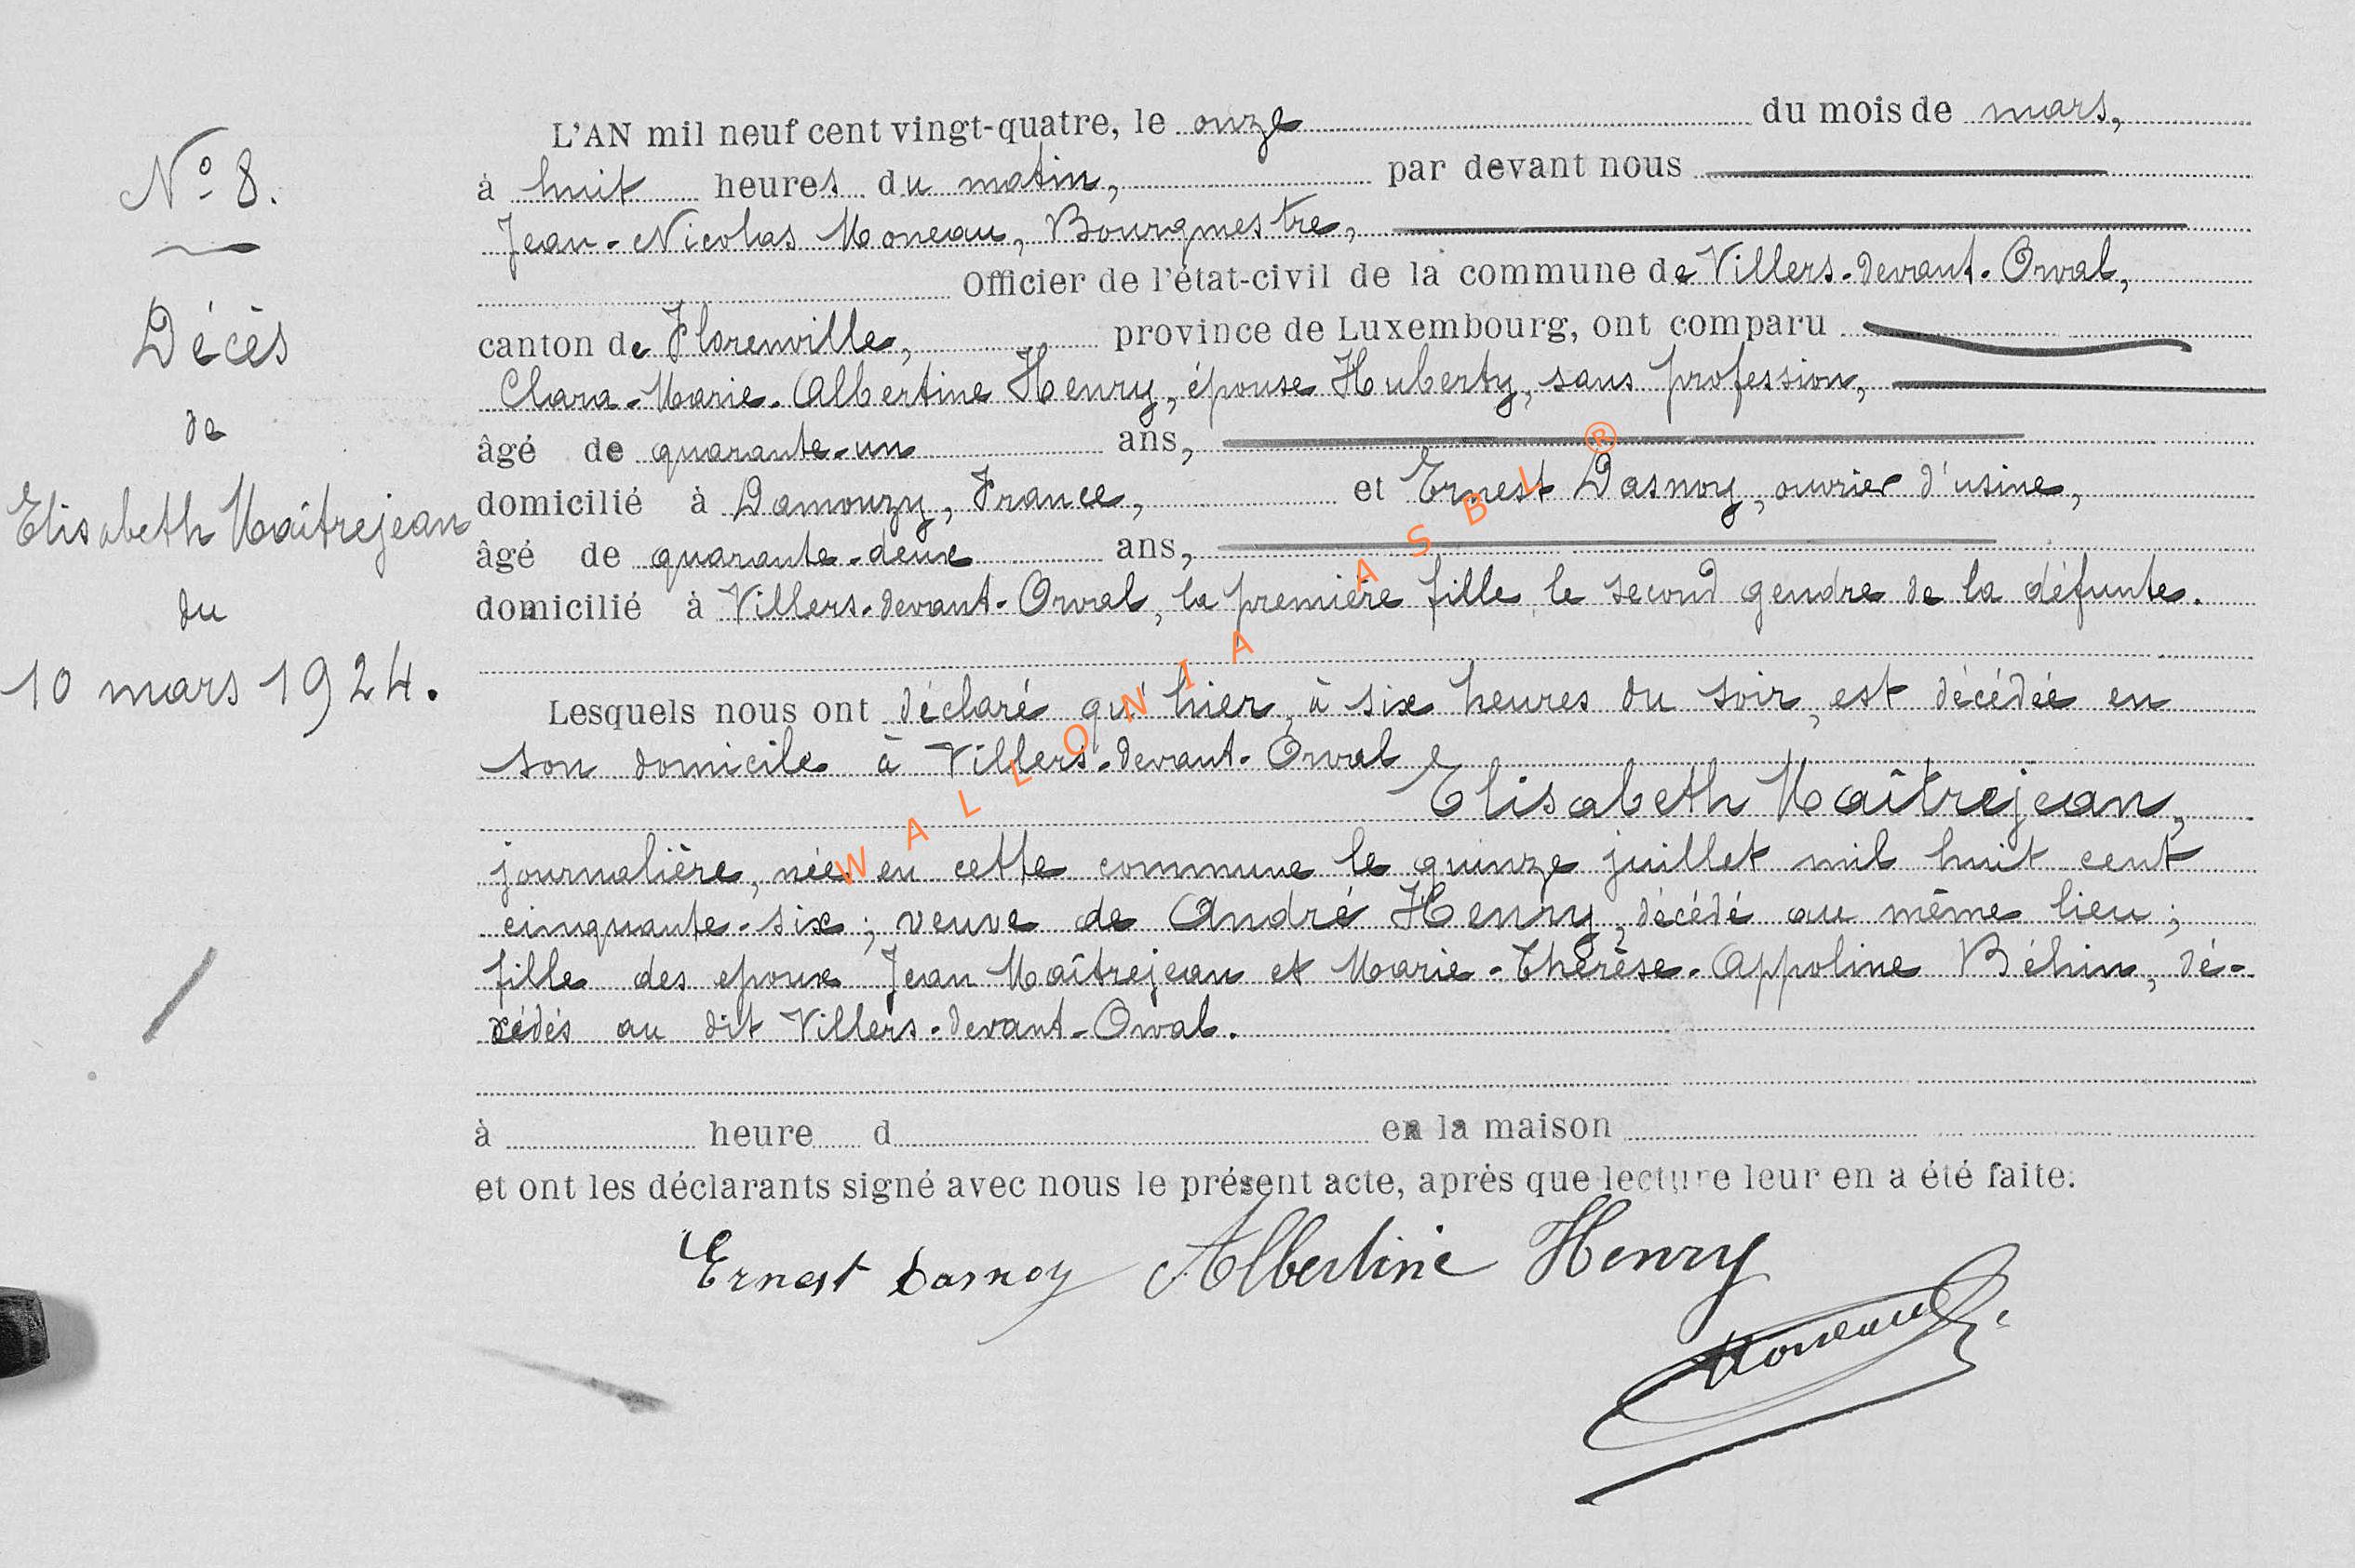 N° 8.
Décès
de
Elisabeth Maîtrejean
du
10 mars 1924.
L'AN mil neuf cent vingt-quatre, le onze du mois de mars,
à huit heures du matin, par devant nous
Jean-Nicolas Moneau, Bourgmestre,
Officier de l'état-civil de la commune de Villers-devant-Orval,
canton de Florenville, province de Luxembourg, ont comparu
Clara-Marie-Albertine Henry, épouse Huberty, sans profession,
âgé de quarante-un ans,
domicilié à Damouzy, France, et Ernest Dasnoy, ouvrier d'usine,
âgé de quarante-deux ans,
domicilié à Villers-devant-Orval, la première fille, le second gendre de la défunte.
Lesquels nous ont déclaré qu'hier, à six heures du soir, est décédée en
son domicile à Villers-devant-Orval
Elisabeth Maîtrejean,
journalière, née en cette commune le quinze juillet mil huit cent
cinquante-six; veuve de André Henry, décédé au même lieu;
fille des epoux Jean Maîtrejean et Marie-Thérèse-Appoline Béhin, dé-
cédés au dit Villers-devant-Orval.
à heure d en la maison
et ont les déclarants signé avec nous le présent acte, après que lecture leur en a été faite.
Ernest Dasnoy Albertine Henry
Moneau
WALLONIA ASBL ®